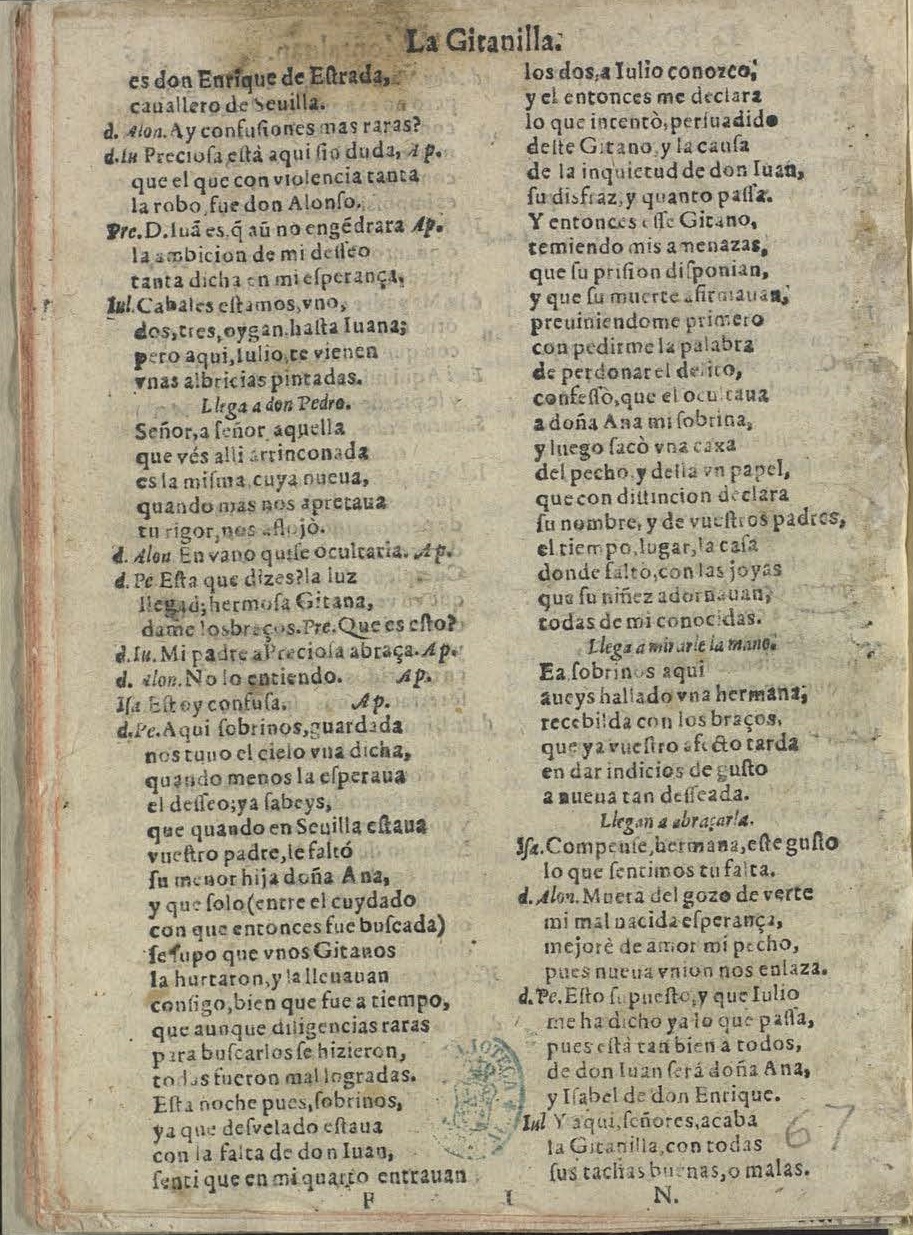 La Gitanilla.
es don Enrique de Eſtrada,
cauallero de Seuilla.
d. Alon. Ay confuſiones mas raras?
d.Iu Precioſa eſtá aqui ſin duda, Ap.
que el que con violencia tanta
la robo, fue don Alonſo.
Pre. D. Iuã es, q̃ aũ no engẽdrara Ap.
la ambicion de mi deſſeo
tanta dicha en mi eſperança,
Iul. Cabales eſtamos, vno,
dos, tres, oygan, haſta Iuana;
pero aqui, Iulio, te vienen
vnas albricias pintadas.
Llega a don Pedro.
Señor, a ſeñor, aquella
que vés alli arrinconada
es la miſma, cuya nueua,
quando mas nos apretaua
tu rigor, nos aflojò.
d. Alon En vano quiſe ocultarla. Ap.
d. Pe Eſta que dizes? la luz
llegad; hermoſa Gitana,
dame los braços. Pre. Que es eſto?
d.Iu. Mi padre a Precioſa abraça. Ap.
d. Alon. No lo entiendo. Ap.
Iſa Eſtoy confuſa. Ap.
d.Pe. Aqui ſobrinos, guardada
nos tuuo el cielo vna dicha,
quando menos la eſperaua
el deſſeo; ya ſabeys,
que quando en Seuilla eſtaua
vueſtro padre, le faltó
ſu menor hija doña Ana,
y que ſolo (entre el cuydado
con que entonces fue buſcada)
ſe ſupo que vnos Gitanos
la hurtaron, y la lleuauan
conſigo, bien que fue a tiempo,
que aunque diligencias raras
para buſcarlos ſe hizieron,
todas fueron mal logradas.
Eſta noche pues, ſobrinos,
ya que deſvelado eſtaua
con la falta de don Iuan,
ſenti que en mi quarto entrauan
los dos, a Iulio conozco,
y el entonces me declara
lo que intentò, perſuadido
deſte Gitano, y la cauſa
de la inquietud de don Iuan,
ſu disfraz, y quanto paſſa.
Y entonces eſſe Gitano,
temiendo mis amenazas,
que ſu priſion diſponian,
y que ſu muerte afirmauan,
preuiniendome primero
con pedirme la palabra
de perdonar el delito,
confeſſò, que el ocultaua
a doña Ana mi ſobrina,
y luego ſacò vna caxa
del pecho, y della vn papel,
que con diſtincion declara
ſu nombre, y de vueſtros padres,
el tiempo, lugar, la caſa
donde faltò, con las joyas
que ſu niñez adornauan,
todas de mi conocidas.
Llega a mirarle la mano.
Ea ſobrinos aqui
aueys hallado vna hermana;
recebilda con los braços,
que ya vueſtro afecto tarda
en dar indicios de guſto
a nueua tan deſſeada.
Llegan a abraçarla.
Iſa. Compenſe, hermana, eſte guſto
lo que ſentimos tu falta.
d. Alon. Muera del gozo de verte
mi mal nacida eſperança,
mejorè de amor mi pecho,
pues nueua vnion nos enlaza.
d.Pe. Eſto ſupueſto, y que Iulio
me ha dicho ya lo que paſſa,
pues eſtá tan bien a todos,
de don Iuan ſerá doña Ana,
y Iſabel de don Enrique.
Iul Y aqui, ſeñores, acaba
la Gitanilla, con todas
ſus tachas buenas, o malas.
F I N.
67